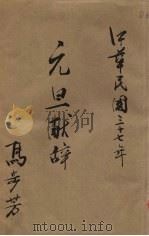 中華民國三十七年
元旦獻辞
高步芳